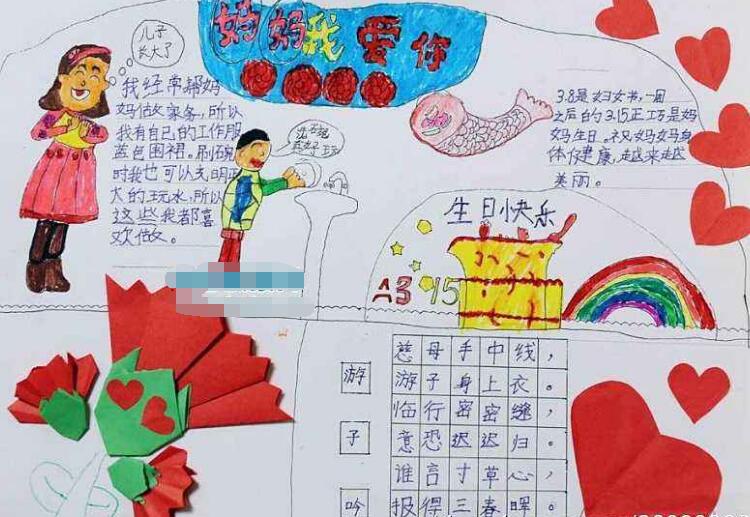 妈妈我爱你
儿子
长大了
我经常帮妈
妈做家务，所以
我有自己的工作服
蓝色围裙。刷碗
时我也可以光明正
大的玩水，所以
这些我都喜
欢做。
3.8是妇女书，一周
之后的3.15正巧是妈
妈生日。祝妈妈身
体健康，越来越
美丽。
生日快乐
3 15
游子吟
慈母手中线，
游子身上衣。
临行密密缝，
意恐迟迟归。
谁言寸草心，
报得三春晖。